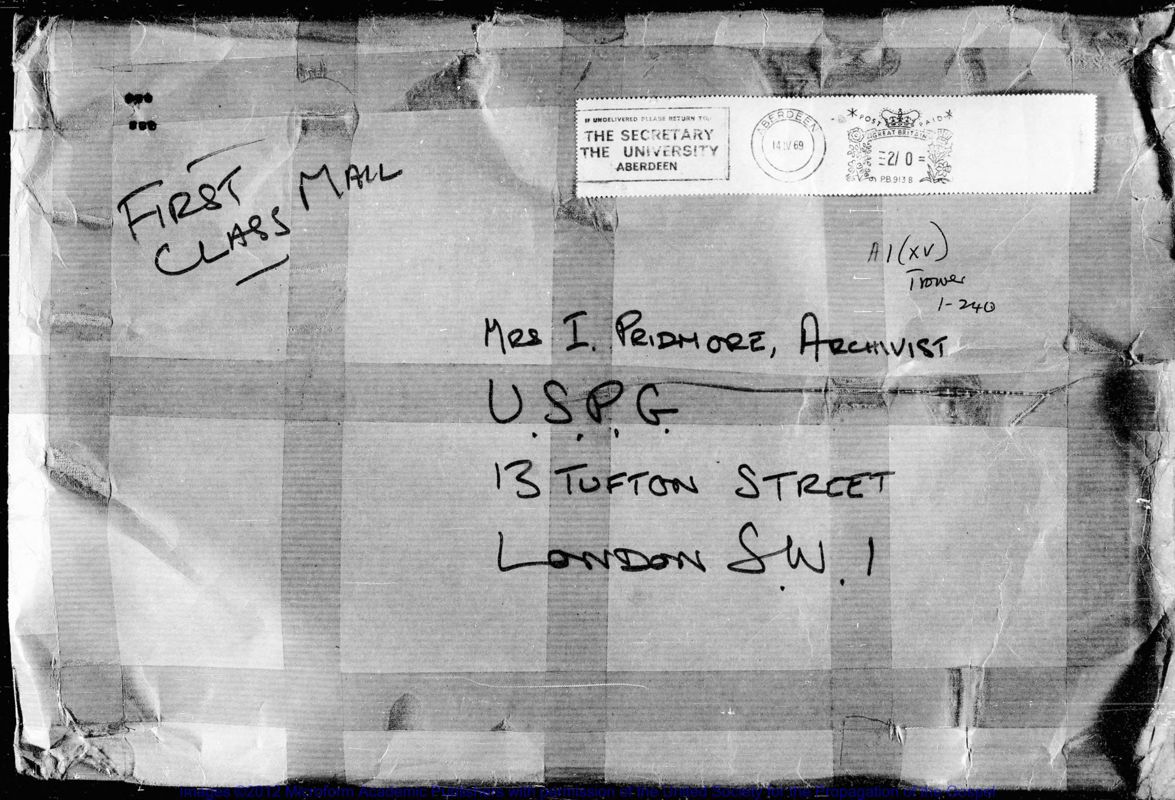 IF UNDELIVERED PLEASE RETURN TO:
THE SECRETARY
THE UNIVERSITY
ABERDEEN
ABERDEEN
14 IV 69
POST PAID
GREAT BRITAIN
2/ 0 =
PB 9138
FIRST
CLASS MAIL
A1(XV)
Trower
1-240
MRS I. PRIDMORE, ARCHIVIST
U.S.P.G.
13 TUFTON STREET
LONDON S.W.1
Images ©2012 Microform Academic Publishers with permission of the United Society for the Propagation of the Gospel